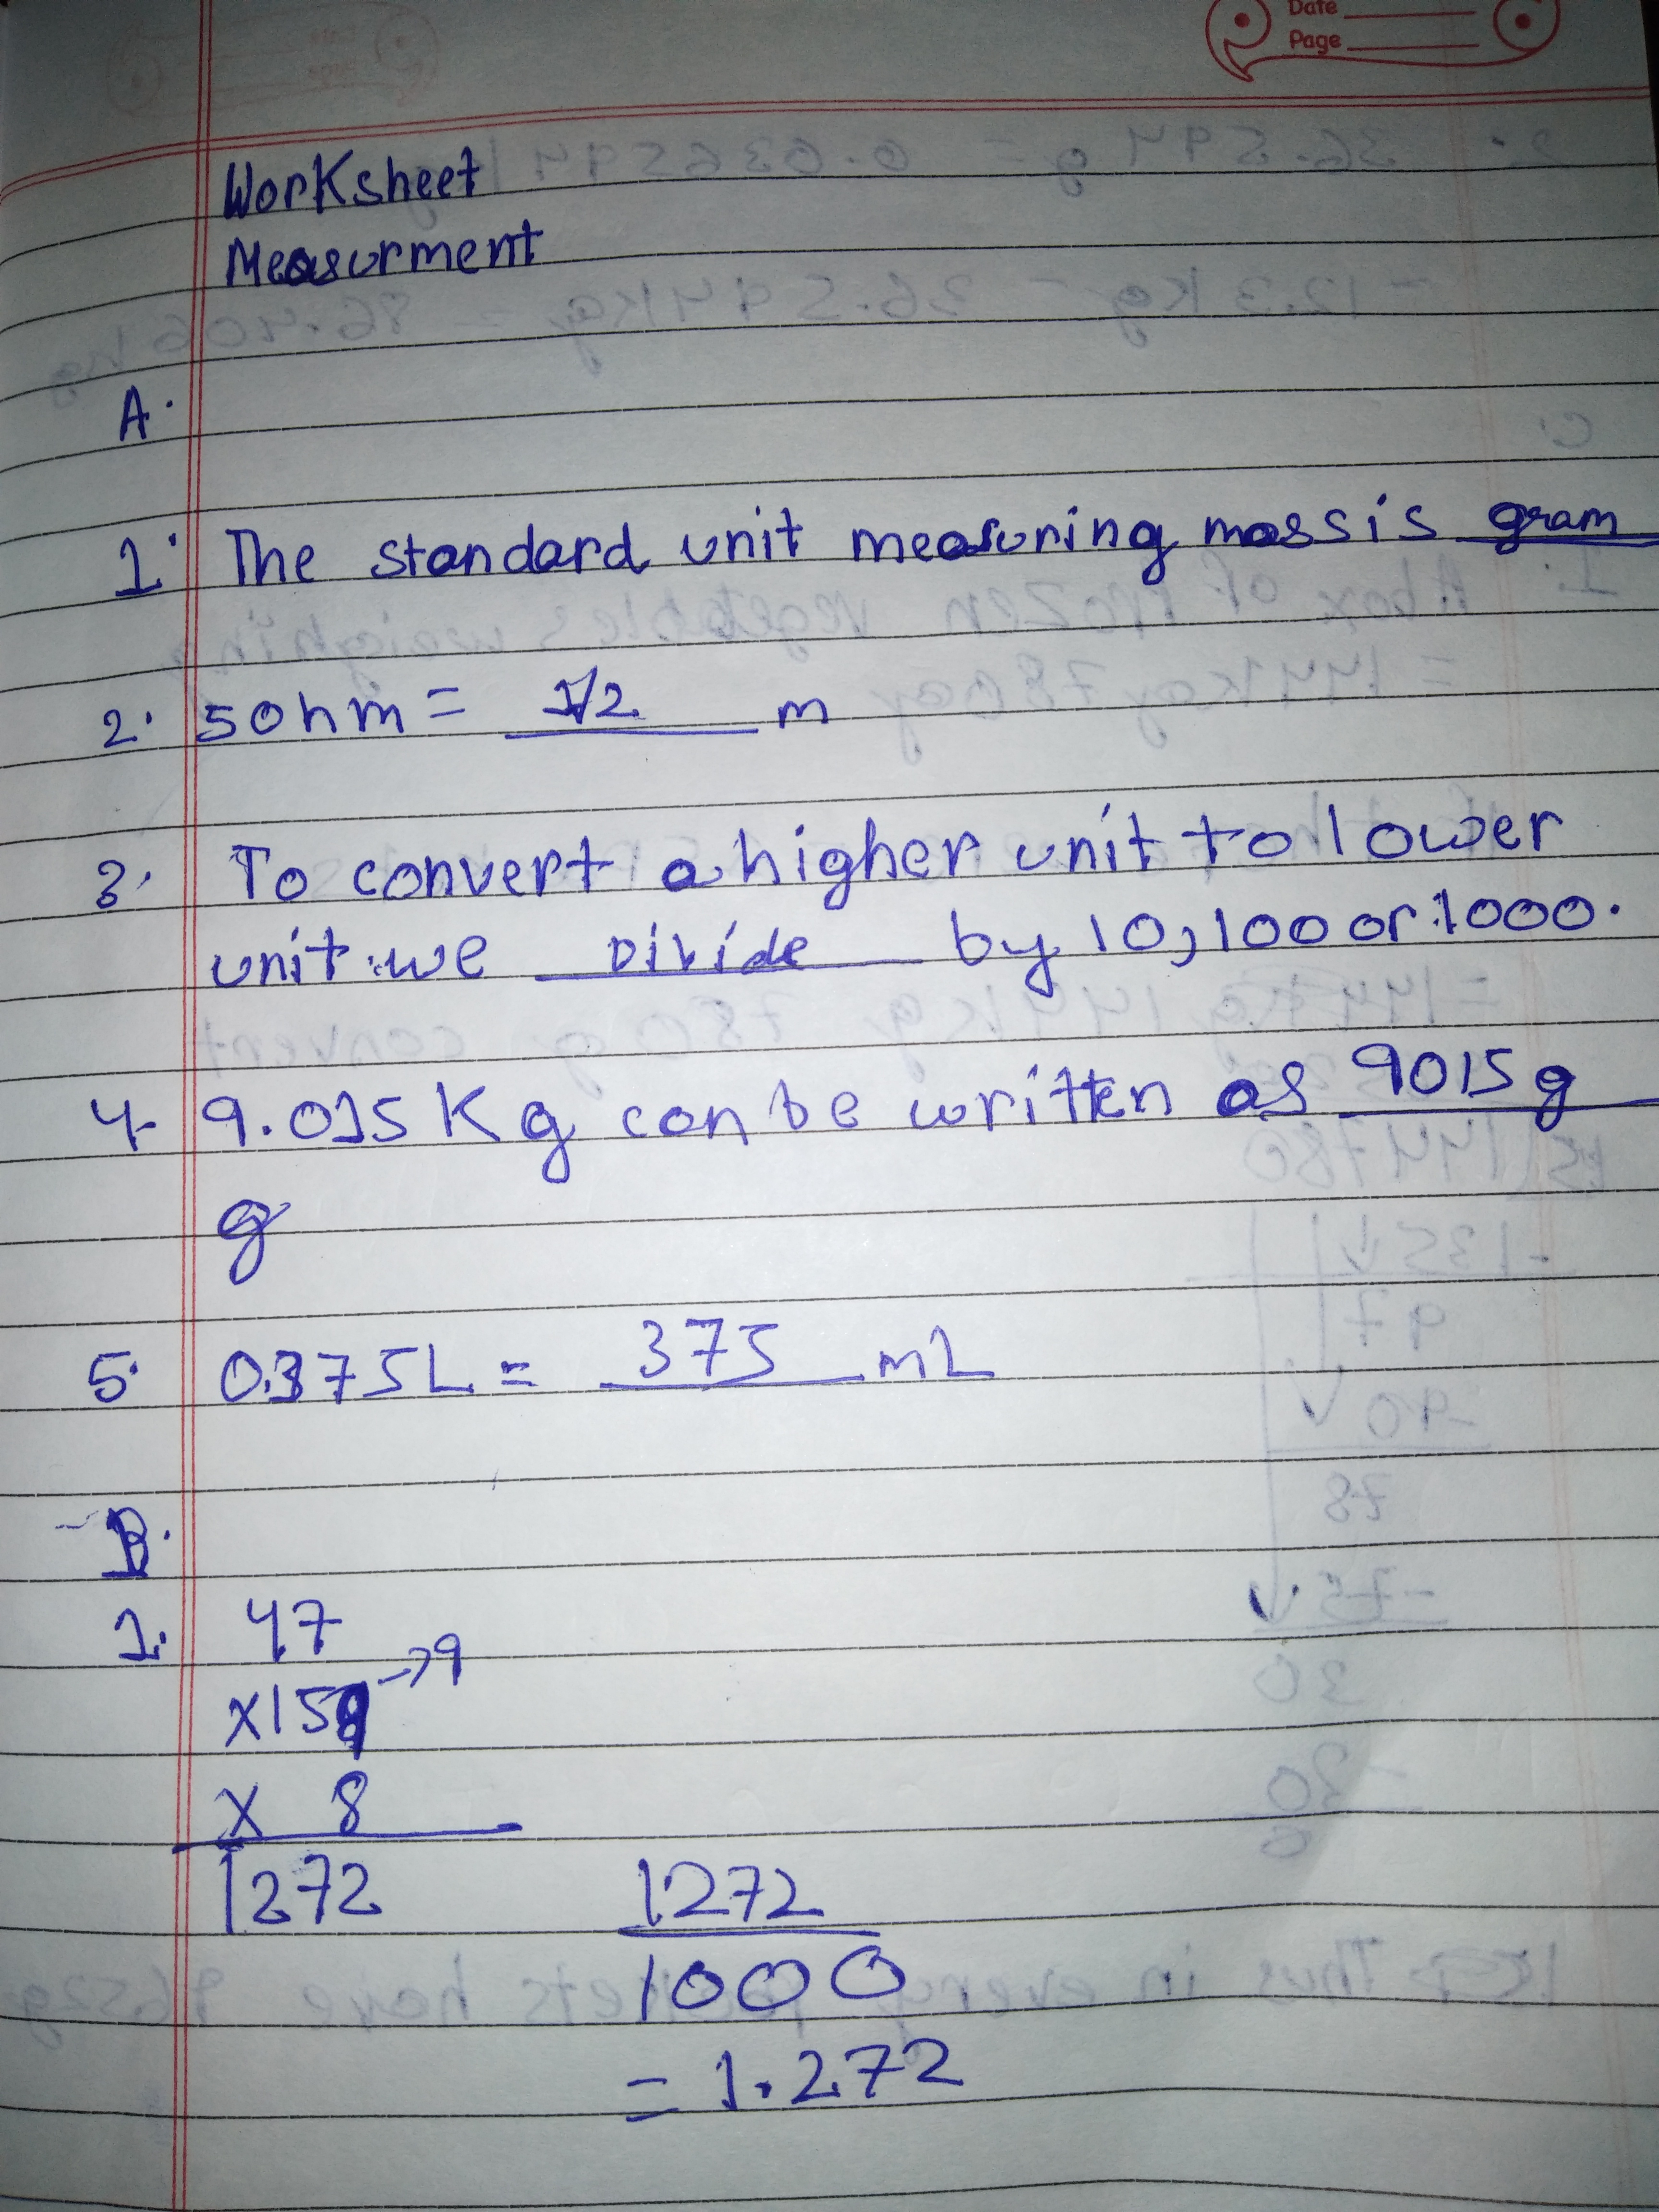 Date
Page
Worksheet
Measurment
A.
1. The standard unit measuring mass is gram
2. 50hm = 1/2 m
3. To convert a higher unit to lower
unit we Divide by 10,100 or 1000.
4. 9.015Kg can be written as 9015g
g
5. 0.375L = 375 mL
B.
1. 47
x159 →9
x 8
1272 1272
1000
= 1.272